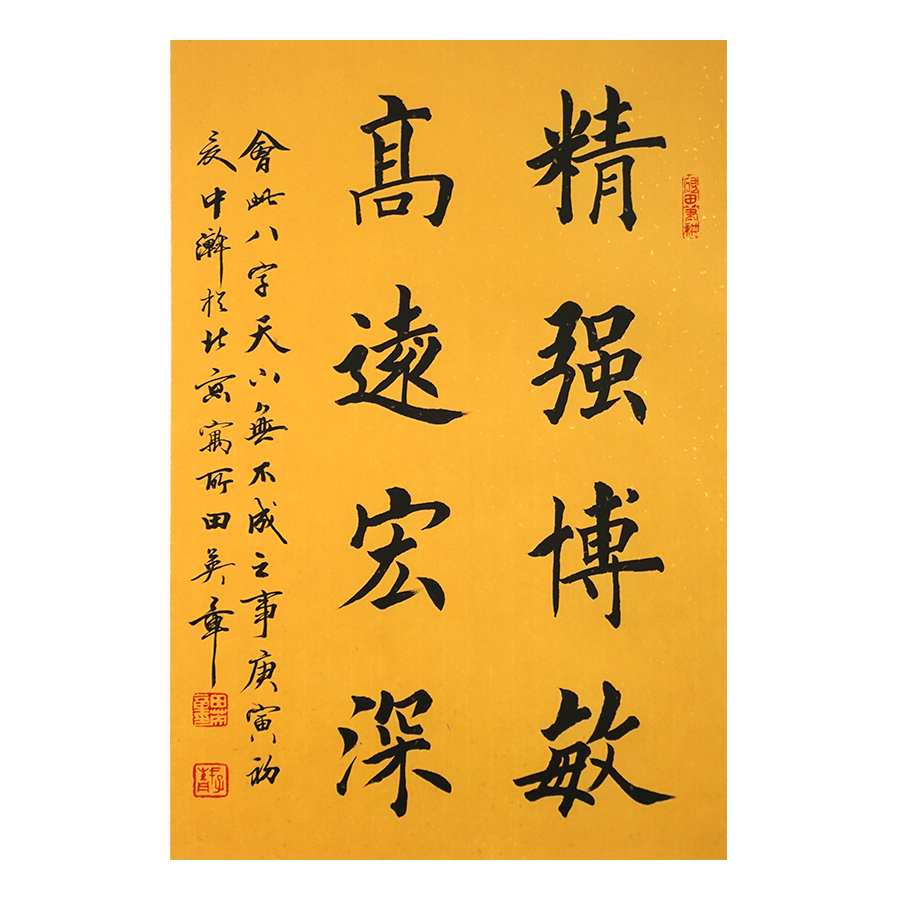 精强博敏
髙遠宏深
會此八字天下無不成之事庚寅初
夏中澣於北京寓所田英章